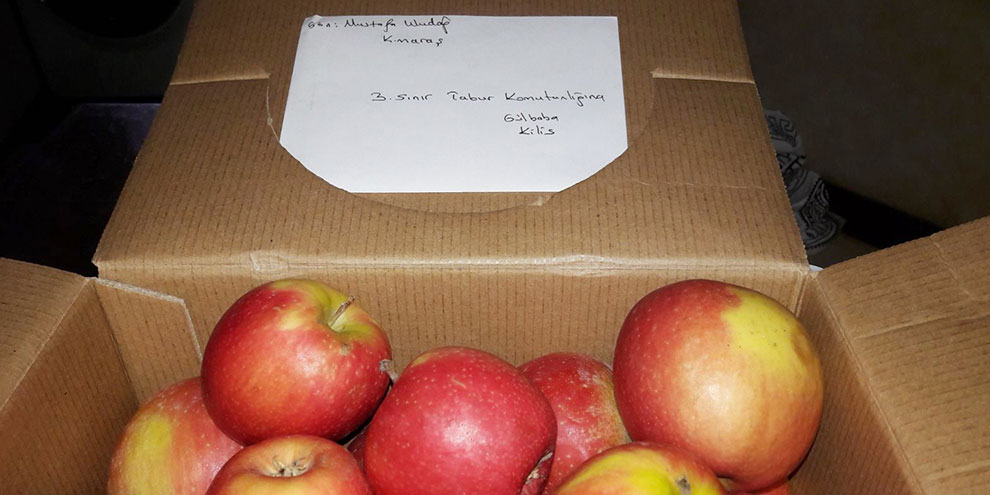 Gön: Mustafa
K.maraş
3. Sınır Tabur Komutanlığına
Gülbaba
Kilis